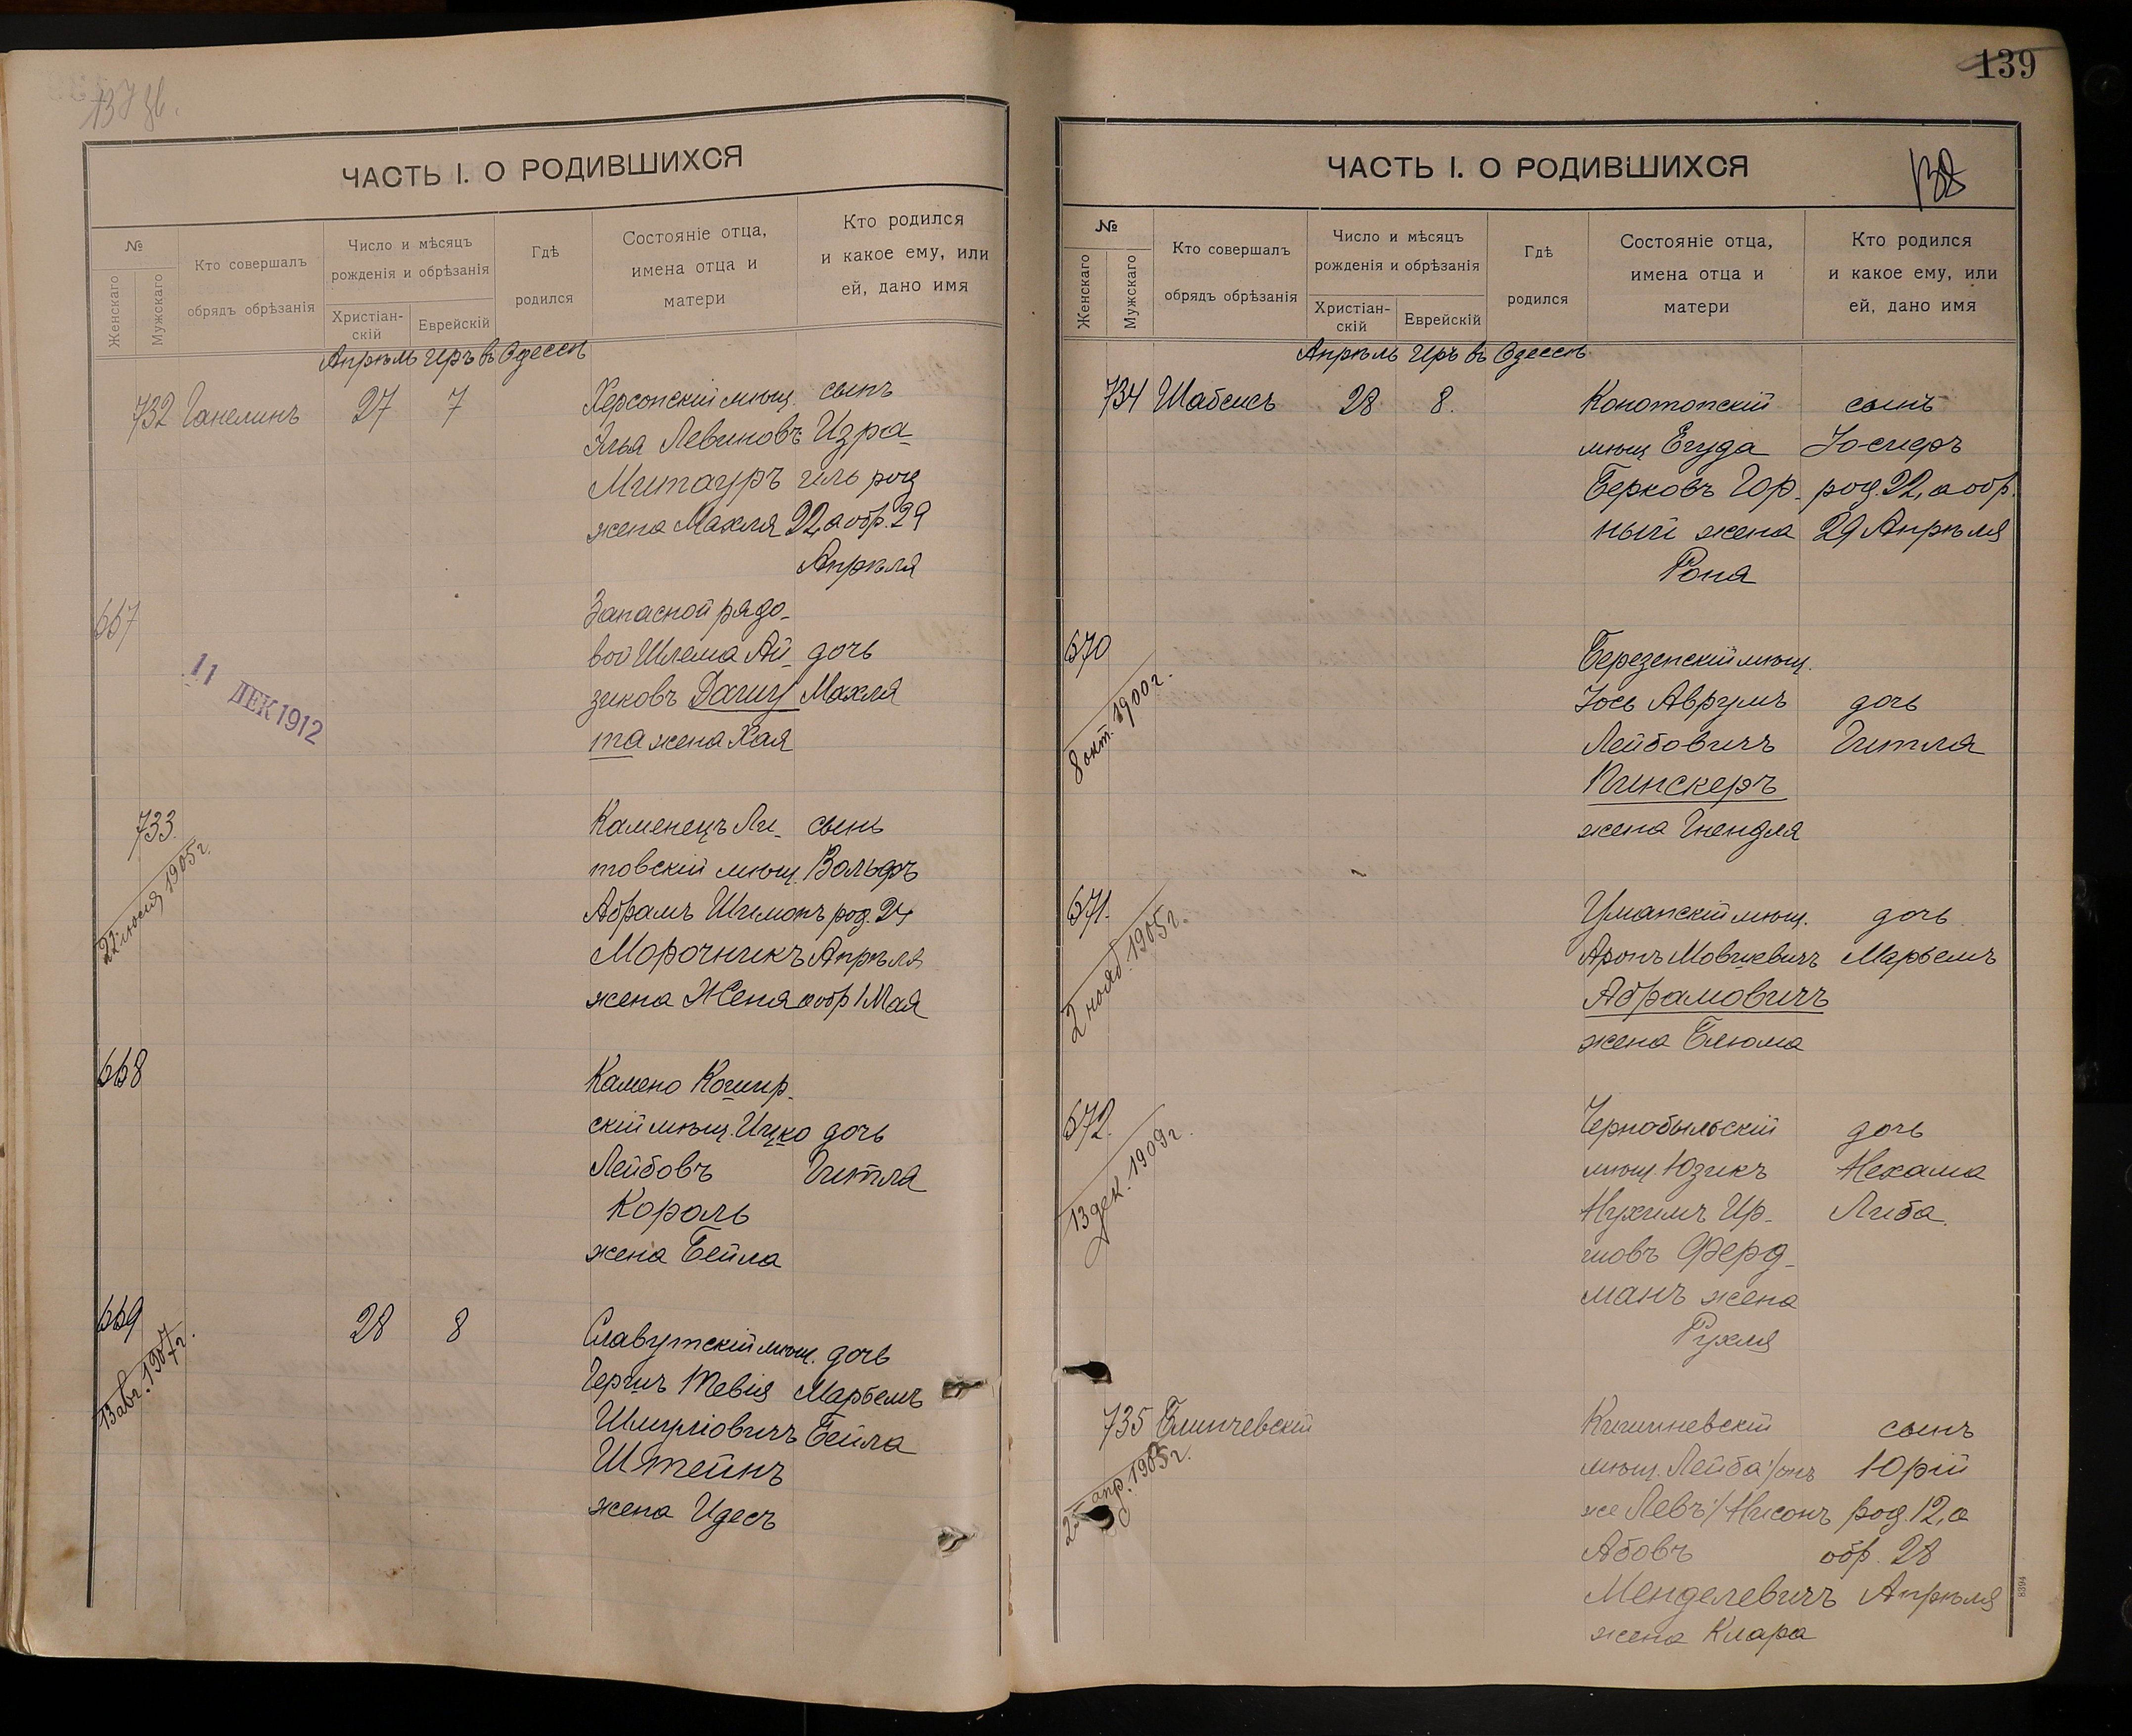 137 зв.
ЧАСТЬ I. О РОДИВШИХСЯ
№
Женскаго
Мужскаго
Кто совершалъ
обрядъ обрѣзанія
Число и мѣсяцъ
рожденія и обрѣзанія
Христіан-
скій
Еврейскій
Гдѣ
родился
Состояніе отца,
имена отца и
матери
Кто родился
и какое ему, или
ей, дано имя
Апрѣль Иръ въ Одессѣ
732 Ганелинъ 27 7 Херсонскій мѣщ. сынъ
Илья Левиновъ Изра-
Митауръ иль род
жена Махля 22, а обр. 29
Апрѣля
667 Запасной рядо-
вой Шлема Ай- дочь
зиковъ Дагин Махля
та жена Хая
11 ДЕК 1912
733 Каменецъ Ли- сынъ
товскій мѣщ. Вольфъ
22 іюля 1905 г.
Абрамъ Шимонъ род. 24
Морочникъ Апрѣля
жена Женя а обр 1 Мая
668 Камено Кошир-
скій мѣщ. Ицко дочь
Лейбовъ Гитла
Король
жена Бейла
669 28 8 Славутскій мѣщ. дочь
13 авг. 1907 г.
Гершъ Тевія Марьемъ
Шмуліовичъ Бейла
Штейнъ
жена Идесъ
139
ЧАСТЬ I. О РОДИВШИХСЯ
138
№
Женскаго
Мужскаго
Кто совершалъ
обрядъ обрѣзанія
Число и мѣсяцъ
рожденія и обрѣзанія
Христіан-
скій
Еврейскій
Гдѣ
родился
Состояніе отца,
имена отца и
матери
Кто родился
и какое ему, или
ей, дано имя
Апрѣль Иръ въ Одессѣ
734 Шабсисъ 28 8. Конотопскій сынъ
мѣщ Егуда Іо-сиеръ
Берковъ Гор- род. 22, а обр.
ный жена 29 Апрѣля
Роня
670 Березенскій мѣщ.
8 окт. 1900 г.
Іось Аврумъ дочь
Лейбовичъ Гитля
Пинскеръ
жена Гнендля
671. Уманскій мѣщ. дочь
2 нояб. 1905 г.
Аронъ Мовшевичъ Марьемъ
Абрамовичъ
жена Блюма
672. Чернобыльскій дочь
13 дек. 1909 г.
мѣщ. Юзикъ Нехама
Нухимъ Ир- Либа.
шовъ Ферд-
манъ жена
Рухля
735 Блинчевскій Кишиневскій сынъ
25 апр. 1905 г.
мѣщ. Лейба /онъ Юрій
же Левъ/ Нисонъ род. 12, а
Абовъ обр. 28
Менделевичъ Апрѣля
жена Клара
8394